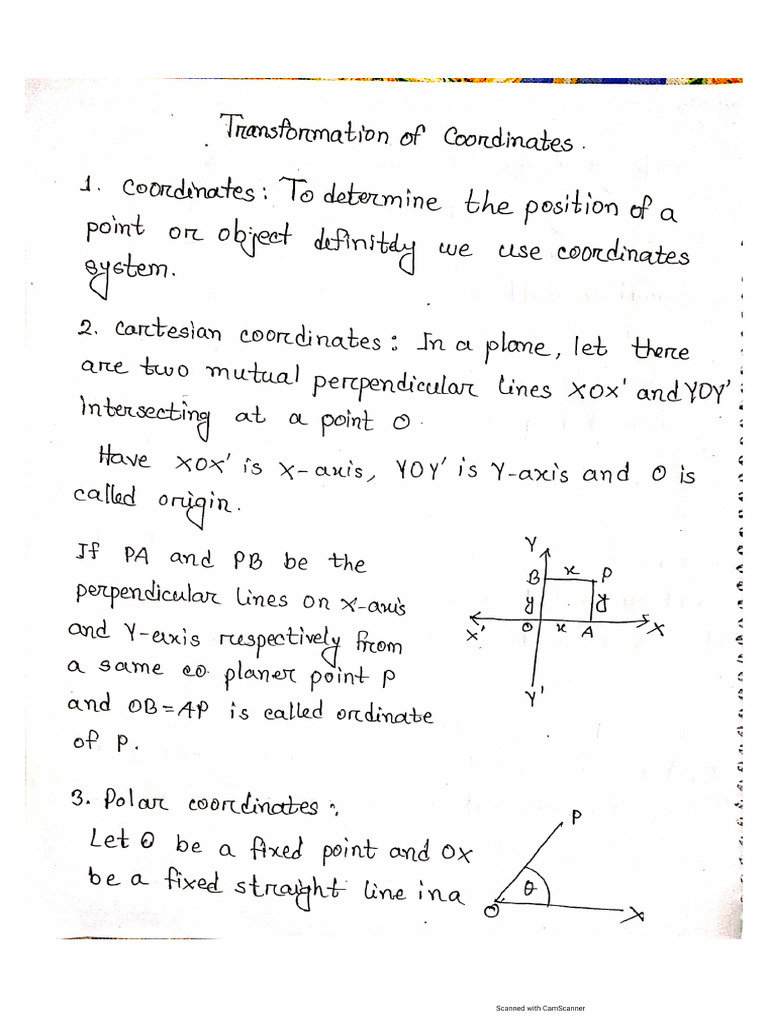 Transformation of Coordinates.
1. Coordinates: To determine the position of a
point or object definitdy we use coordinates
system.
2. Cartesian coordinates: In a plane, let there
are two mutual perpendicular lines XOX' and YOY'
Intersecting at a point O.
Have XOX' is X-axis, YOY' is Y-axis and O is
called origin.
If PA and PB be the
perpendicular lines on X-axis
and Y-axis respectively from
a same co planer point P
and OB=AP is called ordinate
of P.
Y
B x P
y y
X' O x A X
Y'
3. Polar coordinates:
Let O be a fixed point and OX
be a fixed straight line in a
P
θ
O X
Scanned with CamScanner